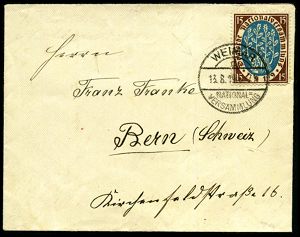 Herrn
Franz Franke
Bern (Schweiz)
Kirchenfeldstraße 16.
WEIMAR
13. 8. 19
NATIONAL-
VERSAMMLUNG
15 nationalversammlung 15